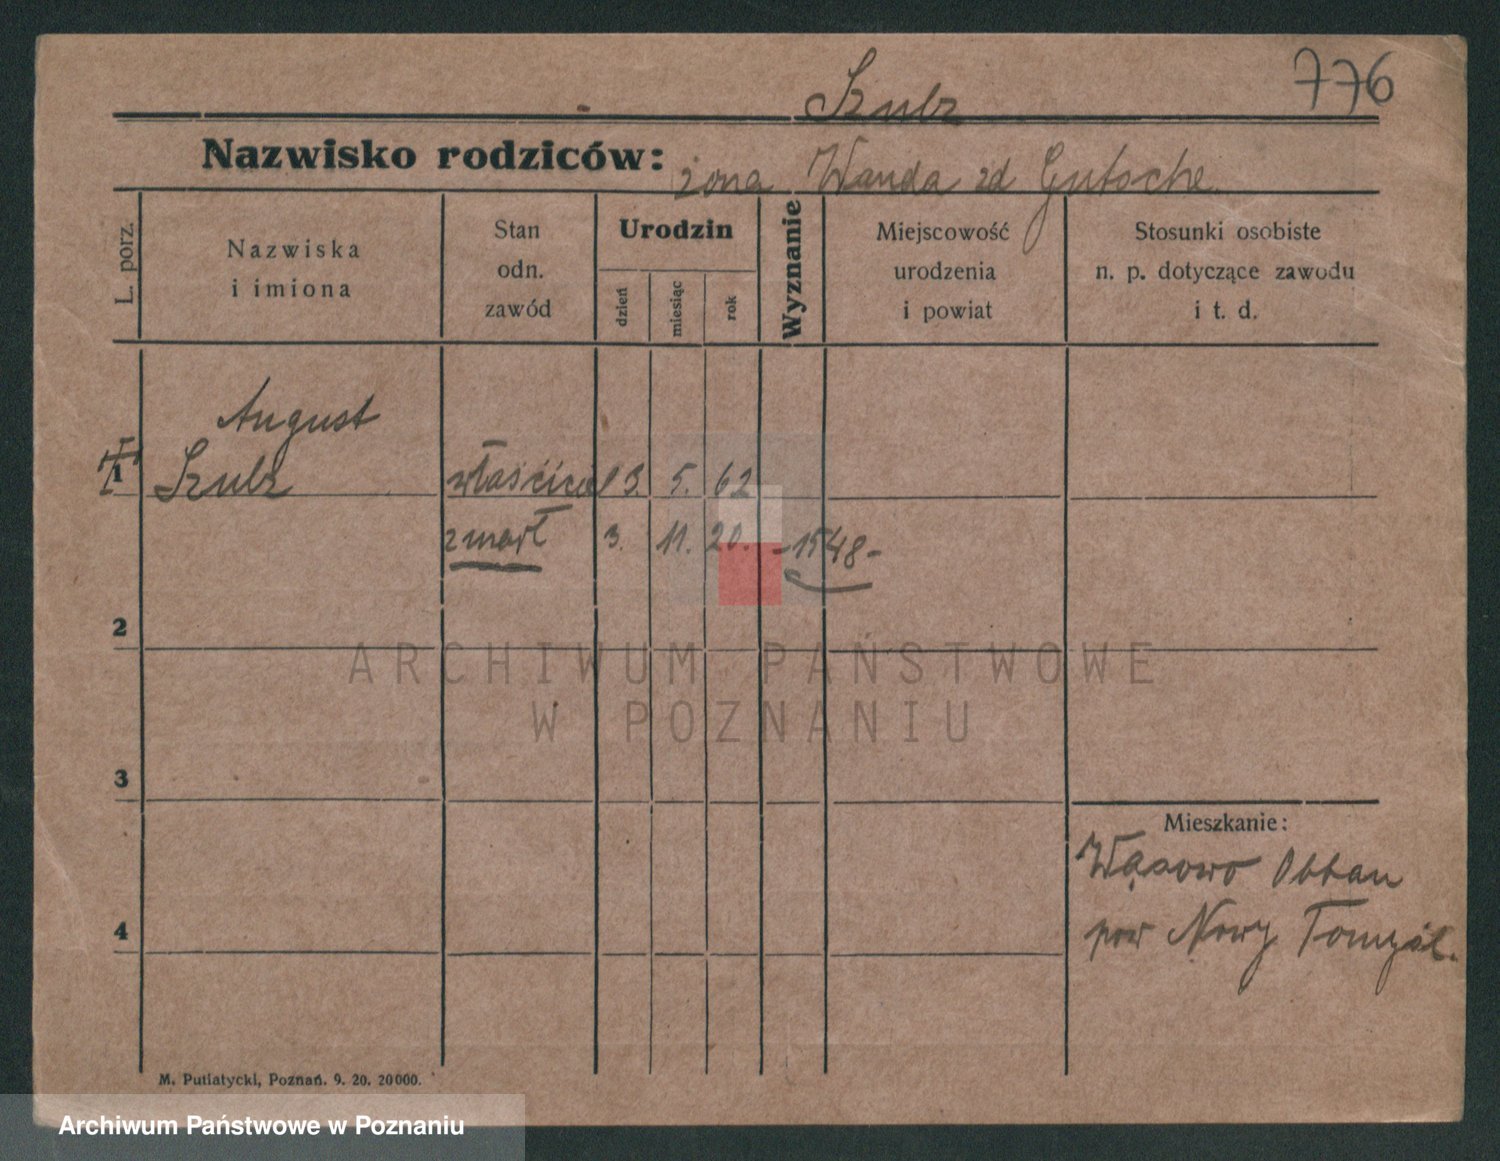 776
Szulz
Nazwisko rodziców: żona Wanda zd Gutsche
L. porz.
Nazwiska
i imiona
Stan
odn.
zawód
Urodzin
dzień
miesiąc
rok
Wyznanie
Miejscowość
urodzenia
i powiat
Stosunki osobiste
n. p. dotyczące zawodu
i t. d.
August
1 Szulz właścicel 3. 5. 62
zmarł 3. 11. 20. -1548-
2
ARCHIWUM PAŃSTWOWE
W POZNANIU
3
Mieszkanie:
Wąsowo
4
pow Nowy Tomyśl.
M. Putiatycki, Poznań. 9. 20. 20000.
Archiwum Państwowe w Poznaniu